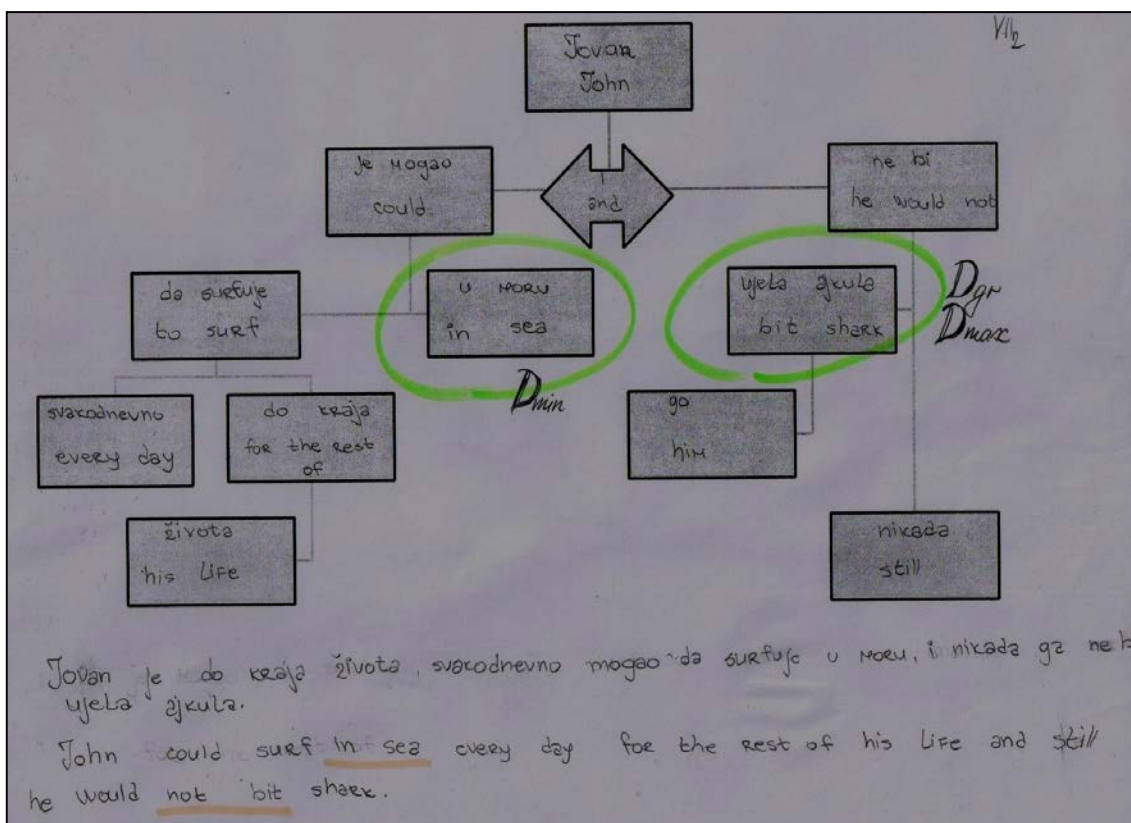 VII2
Jovan
John
je mogao
could
and
ne bi
he would not
da surfuje
to surf
u moru
in sea
ujela ajkula
bit shark
Dgr
Dmax
Dmin
svakodnevno
every day
do kraja
for the rest
of
go
him
života
his life
nikada
still
Jovan je do kraja života, svakodnevno mogao da surfuje u moru, i nikada ga ne b
ujela ajkula.
John could surf in sea every day for the rest of his life and still
he would not bit shark.